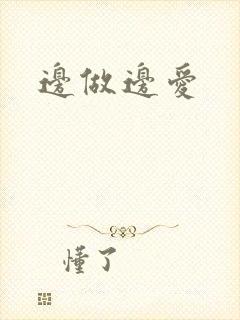 邊做邊愛
懂了